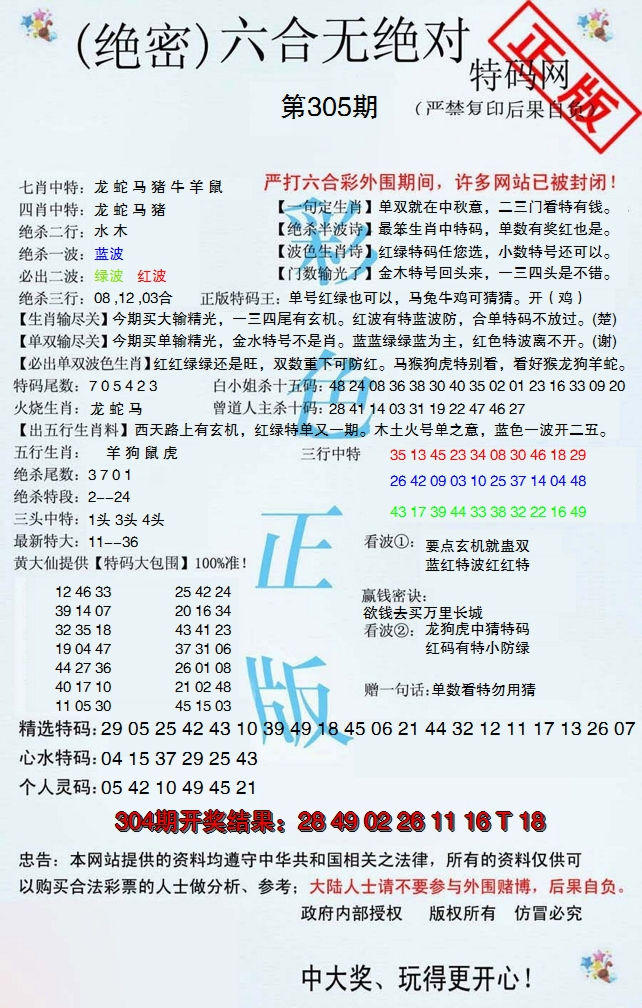 (绝密)六合无绝对
特码网
正版
第305期
(严禁复印后果自负)
七肖中特：龙 蛇 马 猪 牛 羊 鼠
严打六合彩外围期间，许多网站已被封闭！
四肖中特：龙 蛇 马 猪
【一句定生肖】单双就在中秋意，二三门看特有钱。
绝杀二行：水 木
【绝杀半波诗】最笨生肖中特码，单数有奖红也是。
绝杀一波：蓝波
【波色生肖诗】红绿特码任您选，小数特号还可以。
必出二波：绿波 红波
【门数输光了】金木特号回头来，一三四头是不错。
绝杀三行：08 ,12 ,03合
正版特码王：单号红绿也可以，马兔牛鸡可猜猜。开（鸡）
【生肖输尽关】今期买大输精光，一三四尾有玄机。红波有特蓝波防，合单特码不放过。(楚)
【单双输尽关】今期买单输精光，金水特号不是肖。蓝蓝绿绿蓝为主，红色特波离不开。(谢)
【必出单双波色生肖】红红绿绿还是旺，双数重下可防红。马猴狗虎特别看，看好猴龙狗羊蛇。
特码尾数：7 0 5 4 2 3
白小姐杀十五码：48 24 08 36 38 30 40 35 02 01 23 16 33 09 20
火烧生肖： 龙 蛇 马
曾道人主杀十码：28 41 14 03 31 19 22 47 46 27
【出五行生肖料】西天路上有玄机，红绿特单又一期。木土火号单之意，蓝色一波开二五。
五行生肖： 羊 狗 鼠 虎
三行中特
35 13 45 23 34 08 30 46 18 29
绝杀尾数：3 7 0 1
26 42 09 03 10 25 37 14 04 48
绝杀特段：2--24
三头中特：1头 3头 4头
43 17 39 44 33 38 32 22 16 49
最新特大：11--36
看波①： 要点玄机就蛊双
蓝红特波红红特
黄大仙提供【特码大包围】100%准！
12 46 33 25 42 24
39 14 07 20 16 34
32 35 18 43 41 23
19 04 47 37 31 06
44 27 36 26 01 08
40 17 10 21 02 48
11 05 30 45 15 03
赢钱密诀：
欲钱去买万里长城
看波②： 龙狗虎中猜特码
红码有特小防绿
赠一句话:单数看特勿用猜
彩色正版
精选特码：29 05 25 42 43 10 39 49 18 45 06 21 44 32 12 11 17 13 26 07
心水特码：04 15 37 29 25 43
个人灵码：05 42 10 49 45 21
304期开奖结果：28 49 02 26 11 16 T 18
忠告：本网站提供的资料均遵守中华共和国相关之法律，所有的资料仅供可
以购买合法彩票的人士做分析、参考；大陆人士请不要参与外围赌博，后果自负。
政府内部授权 版权所有 仿冒必究
中大奖、玩得更开心！